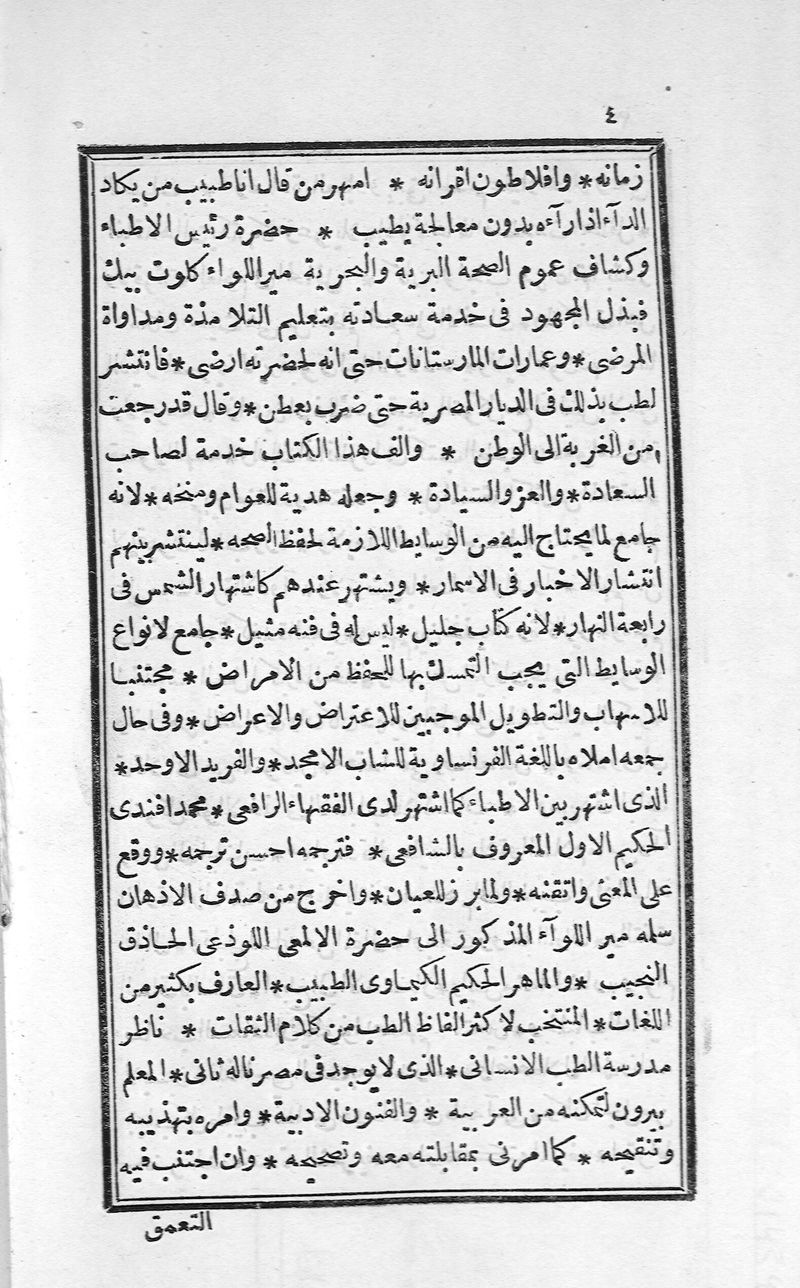 ٤
زمانه * وافلاطون اقرانه * امهر من قال انا طبيب من يكاد
الدآء اذا رآءه بدون معالجة يطيب * حضرة رئيس الاطباء
وكشاف عموم الصحة البرية والبحرية ميراللواء كلوت بيك
فبذل المجهود فى خدمة سعادته بتعليم التلامذة ومداواة
المرضى * وعمارات المارستانات حتى انه لحضرته ارضى * فانتشر
لطب بذلك فى الديار المصرية حتى ضرب بعطن * وقال قد رجعت
من الغربة الى الوطن * والف هذا الكتاب خدمة لصاحب
السعادة * والعز والسيادة * وجعله هدية للعوام ومنحه * لانه
جامع لما يحتاج اليه من الوسايط اللازمة لحفظ الصحه * لينتشر بينهم
انتشار الاخبار فى الاسمار * ويشتهر عندهم كاشتهار الشمس فى
رابعة النهار * لانه كتاب جليل * ليس له فى فنه مثيل * جامع لانواع
الوسايط التى يجب التمسك بها للحفظ من الامراض * مجتنبا
للاسهاب والتطويل الموجبين للاعتراض والاعراض * وفى حال
جمعه املاه باللغة الفرنساوية للشاب الامجد * والفريد الاوحد *
الذى اشتهر بين الاطباء كما اشتهر لدى الفقهاء الرافعى * محمد افندى
الحكيم الاول المعروف بالشافعى * فترجمه احسن ترجمه * ووقع
على المعنى واتقنه * ولما برز للعيان * واخرج من صدف الاذهان
سلمه مير اللوآء المذكور الى حضرة الالمعى اللوذعى الحاذق
النجيب * والماهر الحكيم الكيماوى الطبيب * العارف بكثير من
اللغات * المنتخب لاكثر الفاظ الطب من كلام الثقات * ناظر
مدرسة الطب الانسانى * الذى لا يوجد فى مصرنا له ثانى * المعلم
بيرون لتمكنه من العربية * والفنون الادبية * وامره بتهذيبه
وتنقيحه * كما امرنى بمقابلته معه وتصحيحه * وان اجتنب فيه
التعمق